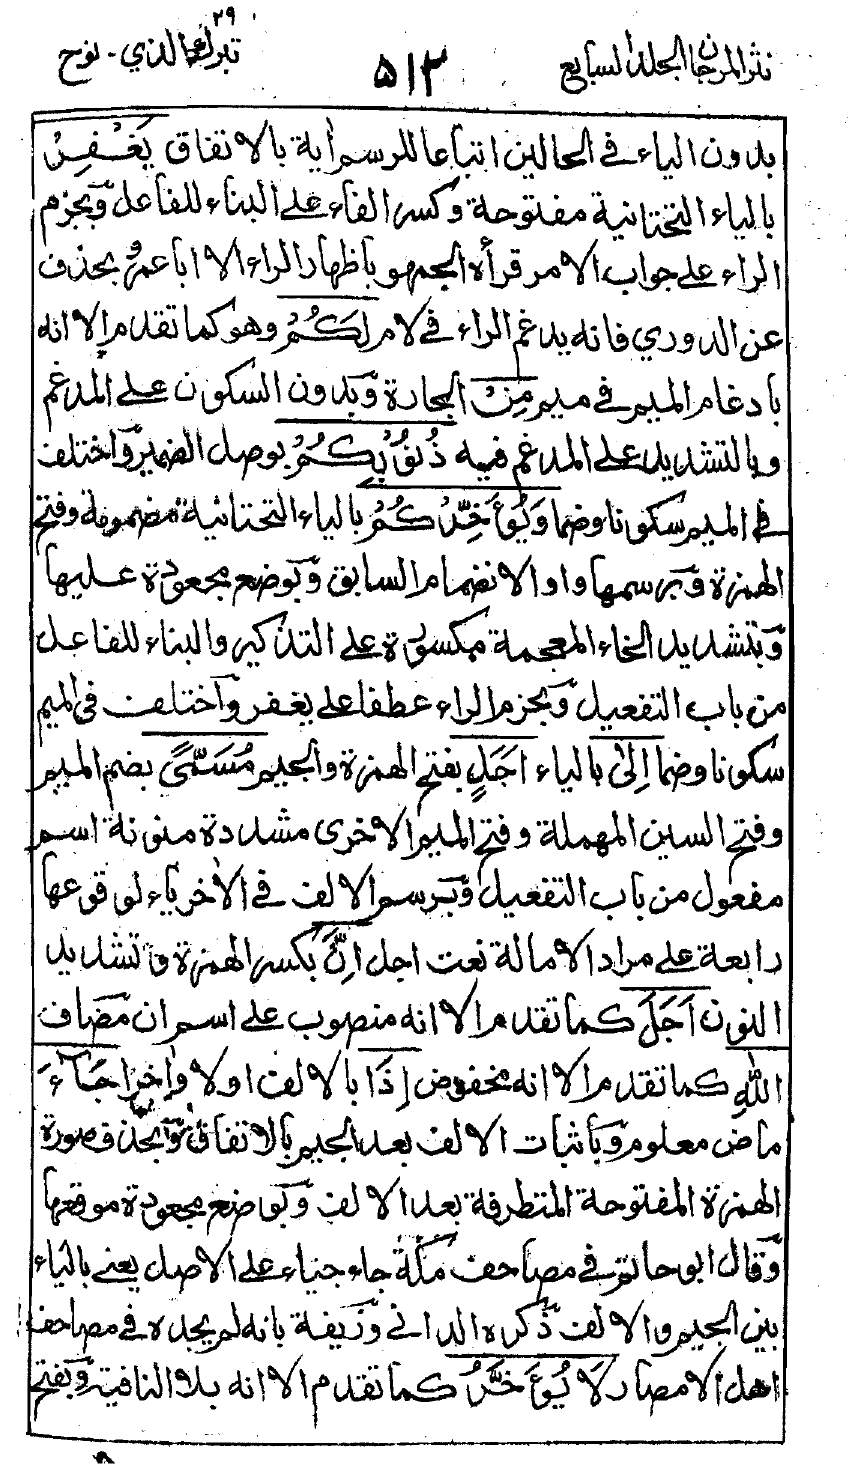 نثر المرجان الجلد السابع
٥١٣
تبرك الذي - نوح
٢٩
بدون الياء في الحالين اتباعا للرسم اية بالاتفاق يَغْفِرْ
بالياء التحتانية مفتوحة وكسر الفاء على البناء للفاعل وبجزم
الراء على جواب الامر قرأه الجمهور باظهار الراء الا ابا عمرو بحذف
عن الدوري فانه يدغم الراء في لام لَكُمْ وهو كما تقدم الا انه
بادغام الميم في ميم مِنْ الجارة وبدون السكون على المدغم
وبالتشديد على المدغم فيه ذُنُوْبِكُمْ بوصل الضمير واختلف
في الميم سكونا وضما وَيُؤَخِّرْكُمْ بالياء التحتانية مضمومة وفتح
الهمزة وبرسمها واوا لانضمام السابق وبوضع مجعودة عليها
وبتشديد الخاء المعجمة مكسورة على التذكير والبناء للفاعل
من باب التفعيل وبجزم الراء عطفا على يغفر واختلف في الميم
سكونا وضما اِلىٰ بالياء اَجَلٍ بفتح الهمزة والجيم مُسَمًّى بضم الميم
وفتح السين المهملة وفتح الميم الاخرى مشددة منونة اسم
مفعول من باب التفعيل وبرسم الالف في الاخر ياء لوقوعها
رابعة على مراد الامالة نعت اجل اِنَّ بكسر الهمزة وتشديد
النون اَجَلَ كما تقدم الا انه منصوب على اسم ان مضاف
اللّٰهِ كما تقدم الا انه مخفوض اِذَا بالالف اولا واخرا جَآءَ
ماض معلوم وباثبات الالف بعد الجيم بالاتفاق وبحذف صورة
الهمزة المفتوحة المتطرفة بعد الالف وبوضع مجعودة موقعها
وقال ابو حاتم في مصاحف مكة جاء جياء على الاصل يعني بالياء
بين الجيم والالف ذكره الداني وزيفه بانه لم يجده في مصاحف
اهل الامصار لَا يُؤَخَّرُ كما تقدم الا انه بلا النافية وبفتح